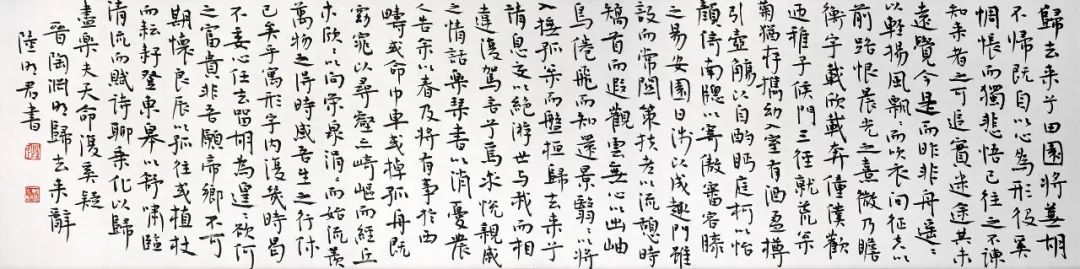 歸去来兮田園將蕪胡
不歸既自以心為形役奚
惆悵而獨悲悟已往之不諫
知来者之可追實迷途其未
遠覺今是而昨非舟遥〻
以軽揚風飄〻而吹衣问征夫以
前路恨晨光之熹微乃瞻
衡宇載欣載奔僮僕歡
迎稚子候門三徑就荒松
菊猶存携幼入室有酒盈樽
引壺觴以自酌眄庭柯以怡
顔倚南牕以寄傲審容膝
之易安園日涉以成趣門雖
設而常関策扶老以流憩時
矯首而遐觀雲無心以出岫
鳥倦飛而知還景翳〻以將
入撫孤松而盤桓歸去来兮
請息交以絶游世与我而相
違復駕言兮焉求悦親戚
之情話樂琴書以消憂農
人告余以春及將有事於西
疇或命巾車或棹孤舟既
窈窕以尋壑亦崎嶇而經丘
木欣〻以向荣泉涓〻而始流羡
萬物之得時感吾生之行休
已矣乎寓形宇内復幾時曷
不委心任去留胡為遑〻欲何
之富貴非吾願帝鄉不可
期懷良辰以孤往或植杖
而耘耔登東皋以舒嘯臨
清流而賦詩聊乘化以歸
盡樂夫天命復奚疑
晋陶渊明歸去来辭
陸明君書